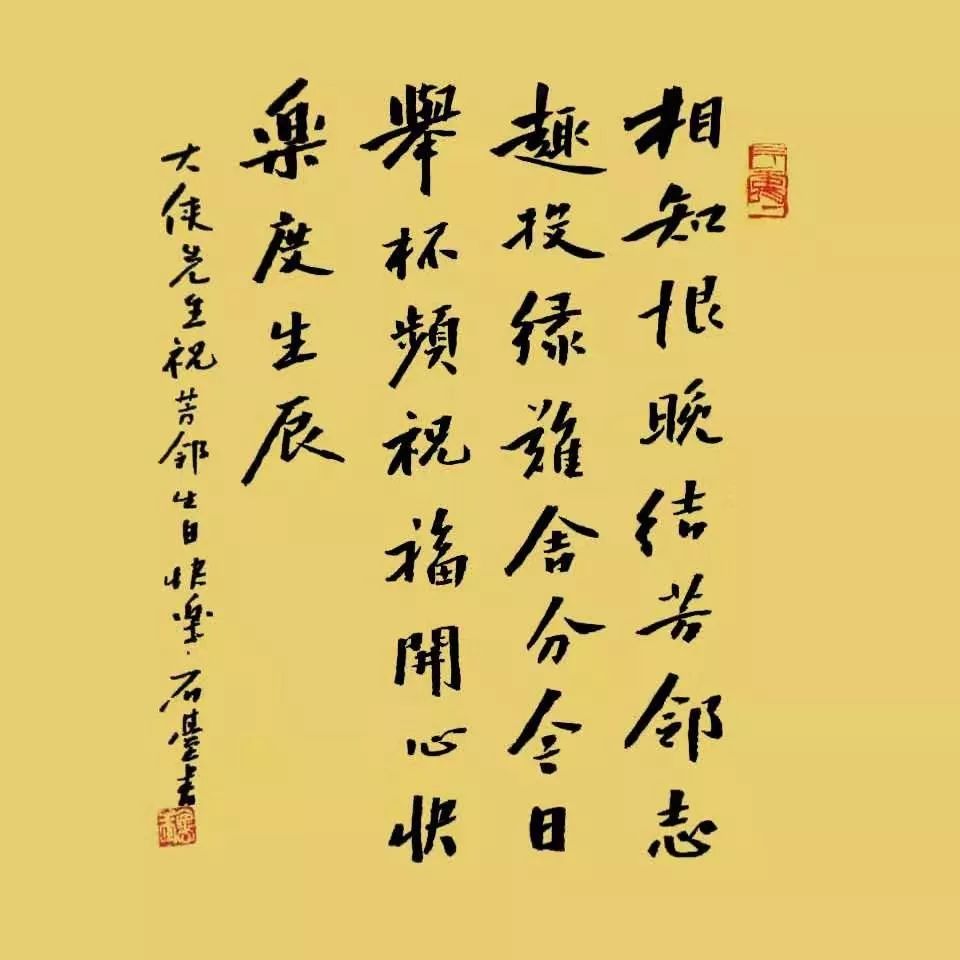 相知恨晚結芳邻志
趣投緣難舍分今日
舉杯頻祝福開心快
樂度生辰
大侠先生祝芳邻生日快樂·石豊书